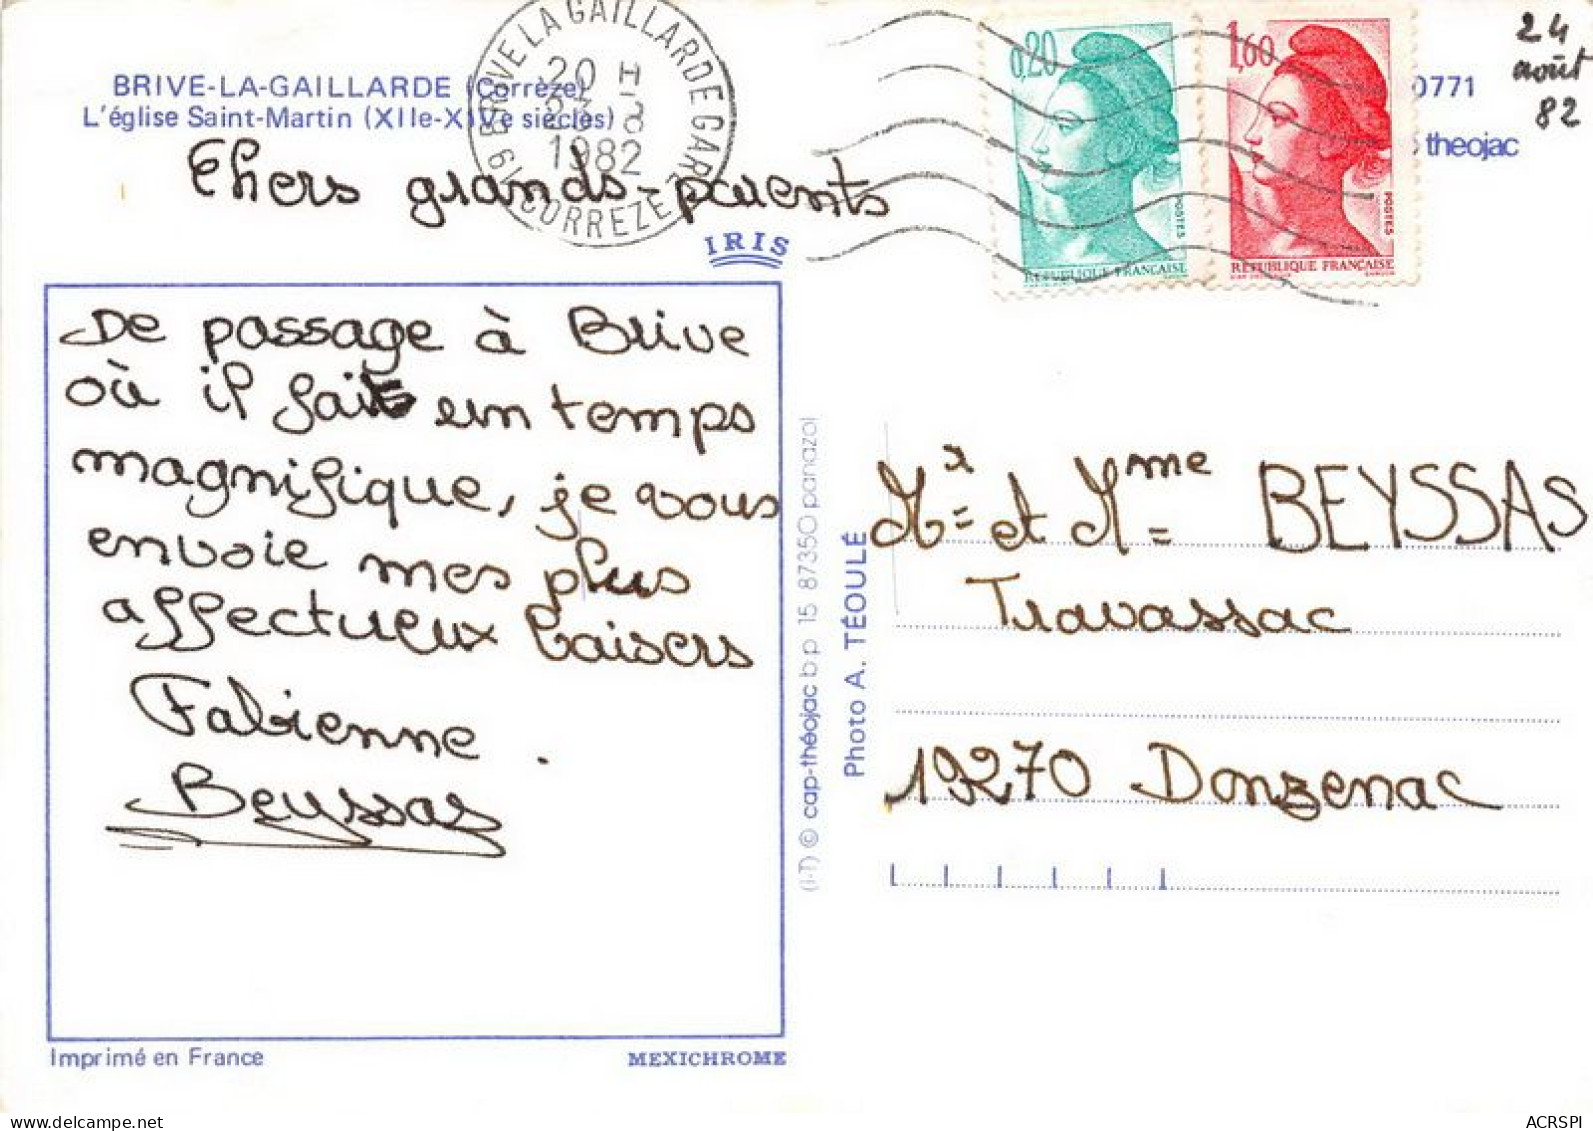 BRIVE-LA-GAILLARDE (Corrèze)
L'église Saint-Martin (XIIe-XIVe siècles)
BRIVE LA GAILLARDE GARE
20 H
1982
19 CORREZE
0,20
POSTES
RÉPUBLIQUE FRANÇAISE
1,60
POSTES
RÉPUBLIQUE FRANÇAISE
0771
theojac
24
août
82
Chers grands-parents
IRIS
De passage à Brive
où il fait un temps
magnifique, je vous
envoie mes plus
affectueux baisers
Fabienne.
Beyssas
Imprimé en France
MEXICHROME
(i-T) © cap-théojac b p 15 87350 panazol
Photo A. TÉOULÉ
Mr et Mme BEYSSAS
Travassac
19270 Donzenac
ACRSPI